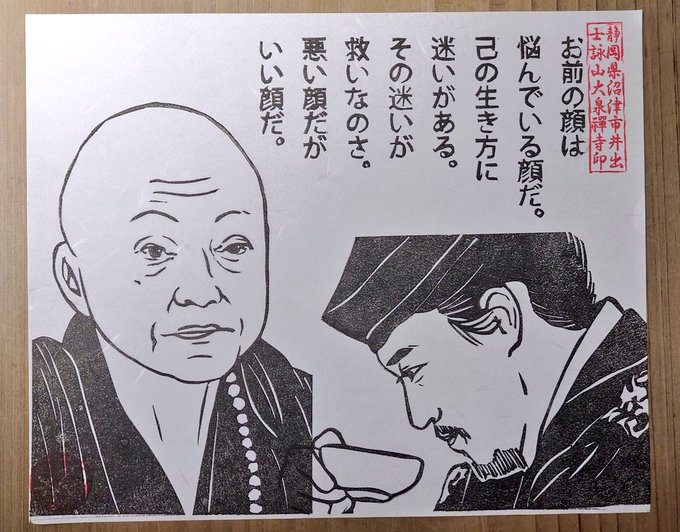 静岡県沼津市井出
士詠山大泉禅寺印
お前の顔は
悩んでいる顔だ。
己の生き方に
迷いがある。
その迷いが
救いなのさ。
悪い顔だが
いい顔だ。